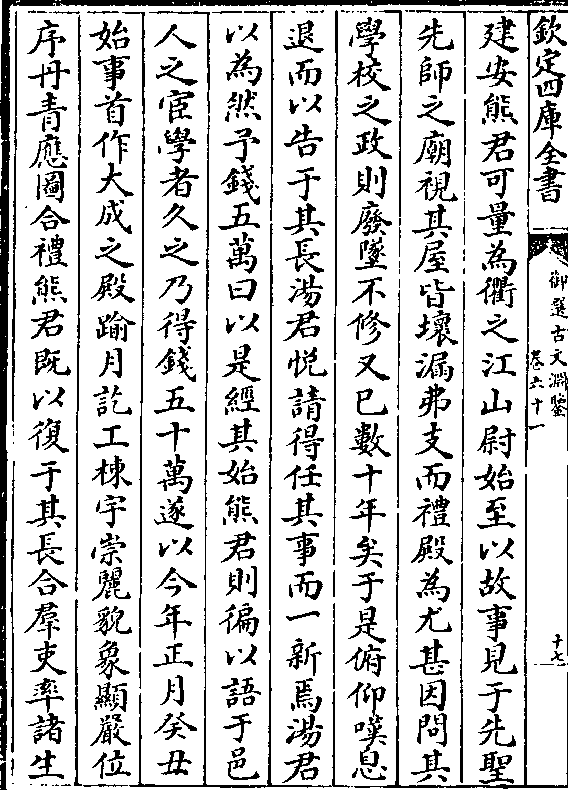 欽定四庫全書
御選古文淵鑒
卷六十一
十七
建安熊君可量為衢之江山尉始至以故事見于先聖
先師之廟視其屋皆壞漏弗支而禮殿為尤甚因問其
學校之政則廢墜不修又已數十年矣于是俯仰嘆息
退而以告于其長湯君悅請得任其事而一新焉湯君
以為然予錢五萬曰以是經其始熊君則徧以語于邑
人之宦學者久之乃得錢五十萬遂以今年正月癸丑
始事首作大成之殿踰月訖工棟宇崇麗貌象顯嚴位
序丹青應圖合禮熊君既以復于其長合羣吏率諸生